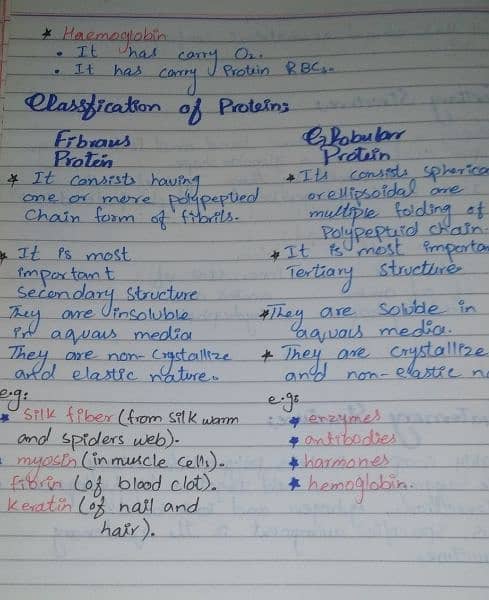 * Haemoglobin
• It has carry O2.
• It has carry Protein RBCs.
Classfication of Proteins
Fibraus
Protein
* It consists having
one or more polypeptied
Chain form of fibrils.
* It is most
important
Secondary Structure
They are insoluble
in aquaus media
They are non-crystallize
and elastic nature.
e.g:
* Silk fiber (from Silk warm
and spiders web).
myosin (in muscle cells).
fibrin (of blood clot).
Keratin (of nail and
hair).
Globular
Protein
* Its consists spherica
or ellipsoidal are
multiple folding of
Polypeptid chain.
* It is most importan
Tertiary structure
* They are soluble in
aquaus media.
* They are crystallize
and non-elastic n
e.g:
* enzymes
* antibodies
* harmones
* hemoglobin.